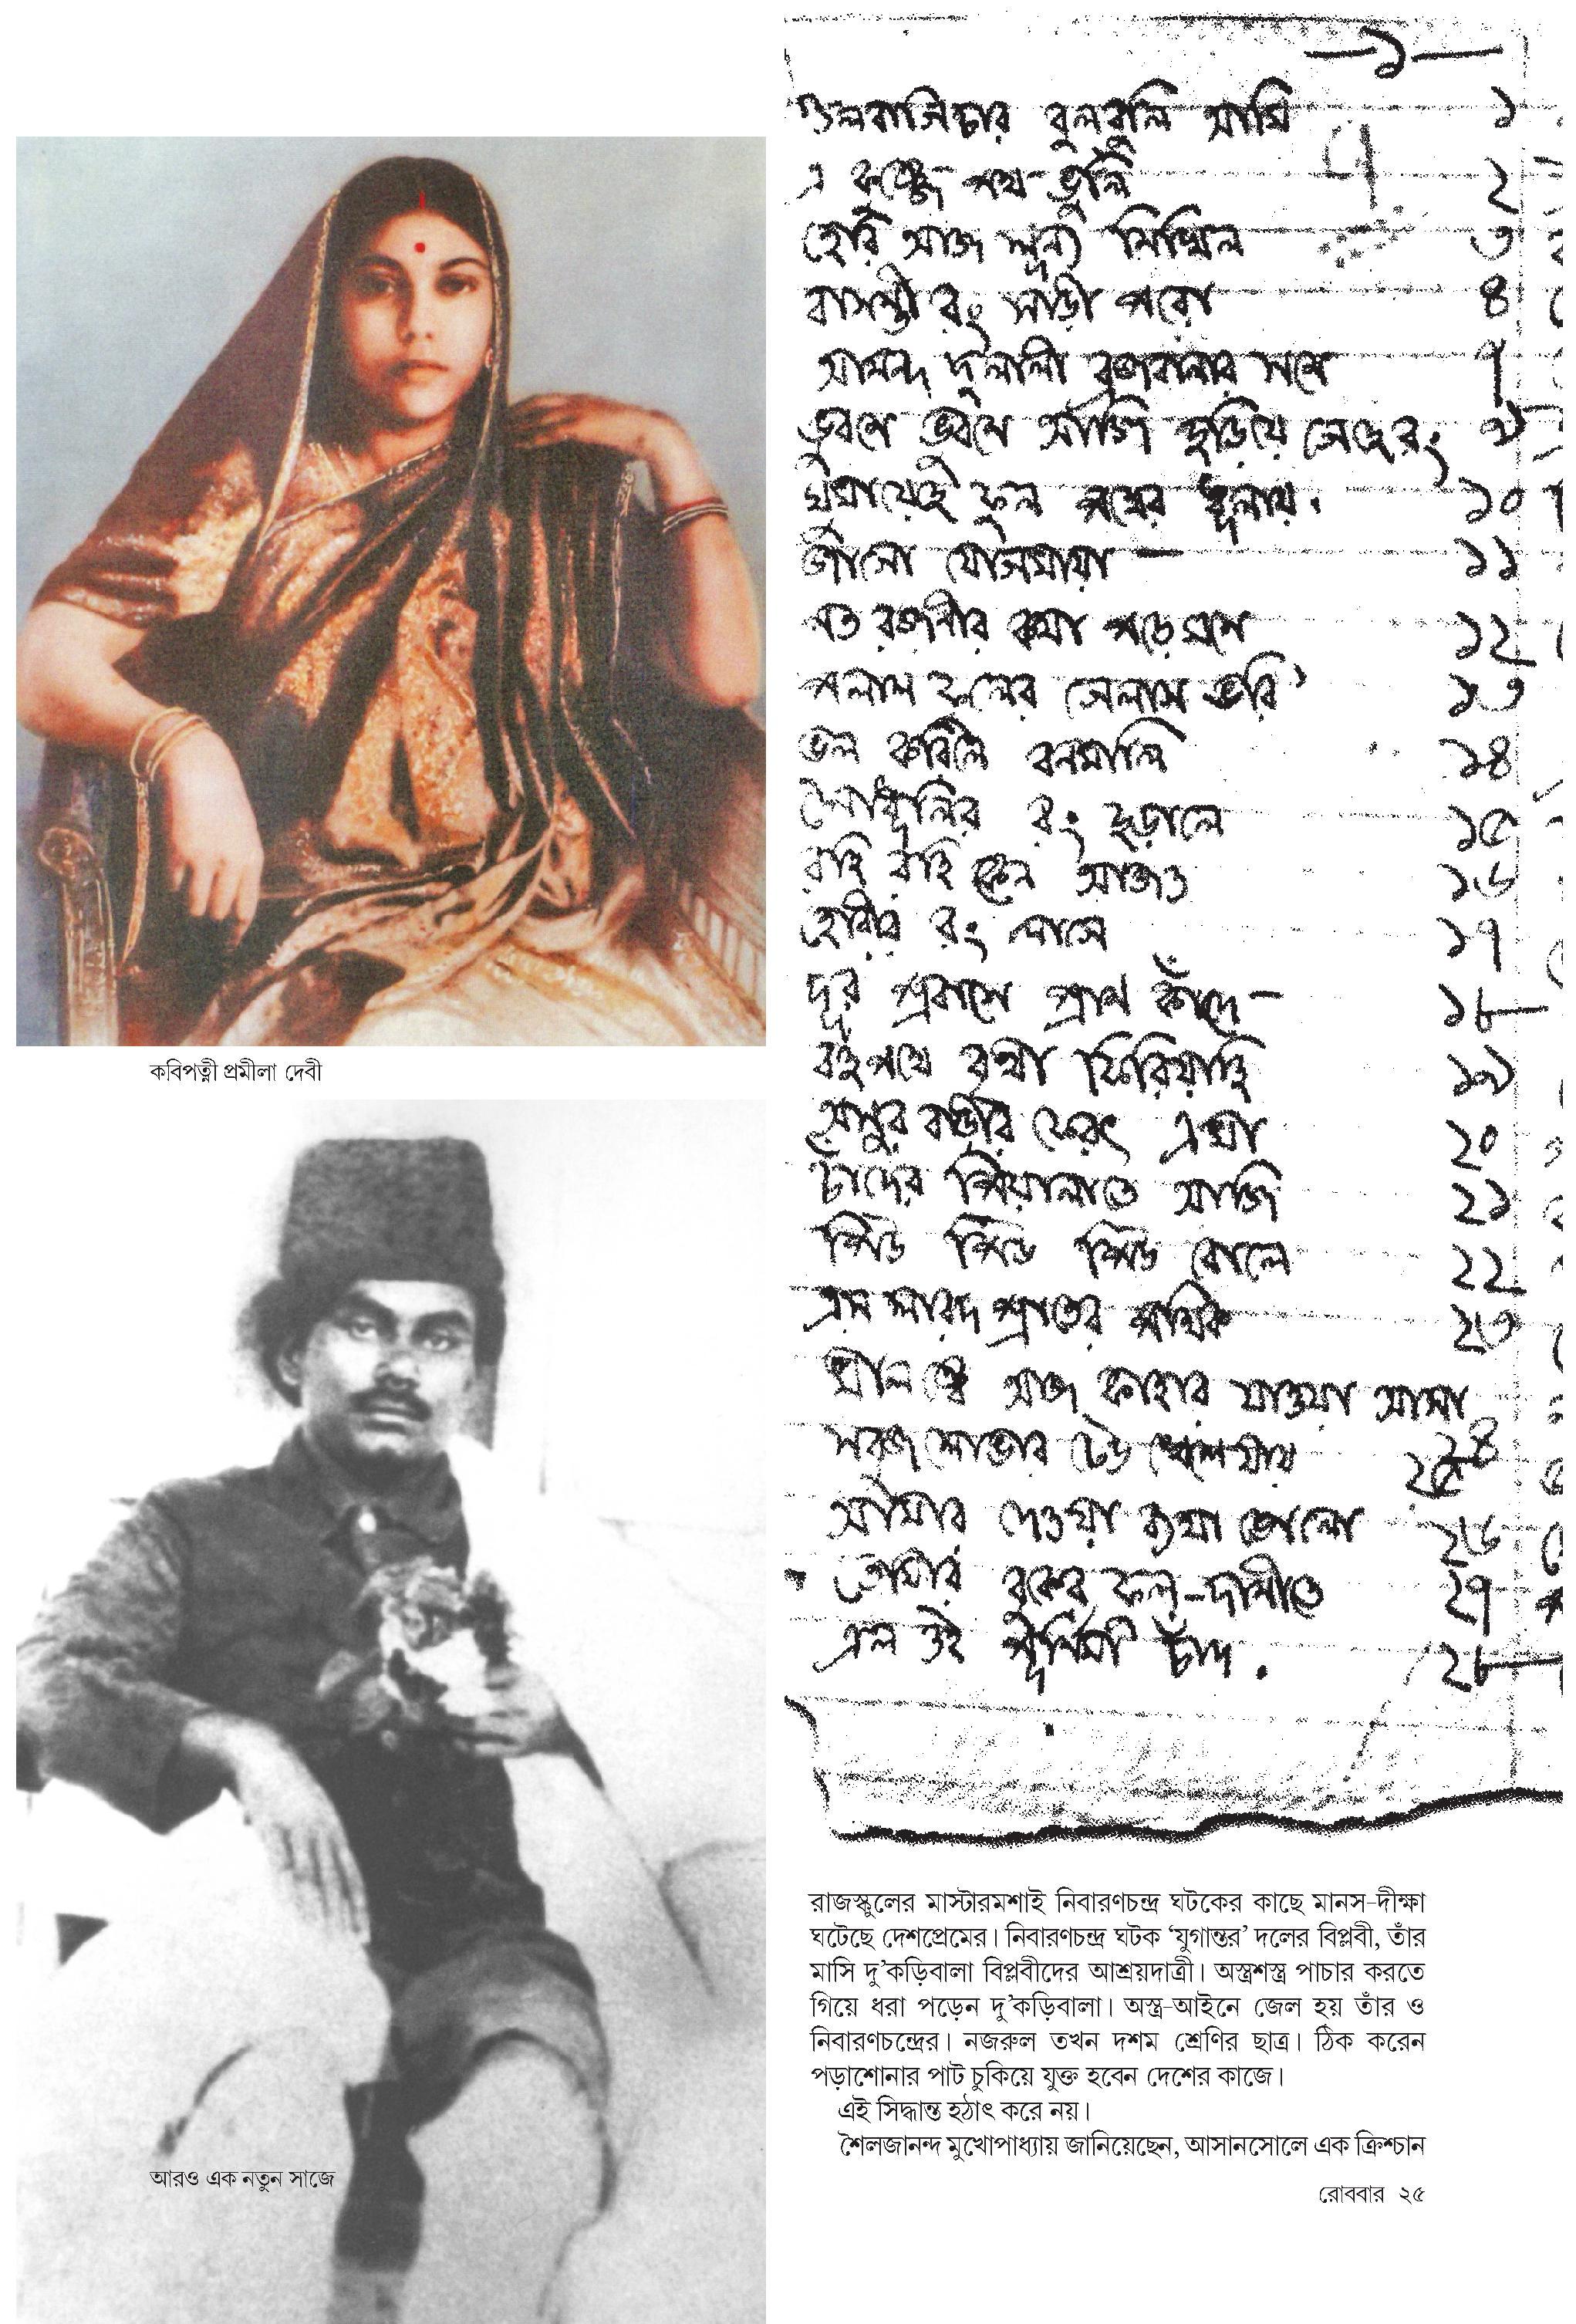 কবিপত্নী প্রমীলা দেবী
আরও এক নতুন সাজে
—১—
গুলবাগিচার বুলবুলি আমি ১
এ কুঞ্জে পথ ভুলি ২
হেরি আজ শূন্য নিখিল ৩
বাসন্তী রং শাড়ী পরো ৪
আনন্দ দুলালী ব্রজবালার সনে ৭
ভুবনে ভুবনে আজি ছড়িয়ে গেছে রং ৯
ঘুমায়েছে ফুল পথের ধূলায়. ১০
জাগো যোগমায়া — ১১
গত রজনীর কথা পড়ে মনে ১২
পলাশ ফুলের গেলাস ভরি' ১৩
ভুল করিলে বনমালি ১৪
গোধূলির রং ছড়ালে ১৫
রহি রহি কেন আজও ১৬
হোরির রং লাগে ১৭
দূর প্রবাসে প্রাণ কাঁদে — ১৮
বহু পথে বৃথা ফিরিয়াছি ১৯
শ্বশুর বাড়ীর ফেরৎ এথা ২০
চাঁদের পিয়ালাতে আজি ২১
পিউ পিউ পিউ বোলে ২২
এস শারদ প্রাতের পথিক ২৩
আজ কাহার যাওয়া আসা ২৪
সবুজ শোভার ঢেউ খেলে যায় ২৫
আমার দেওয়া ব্যথা ভোলো ২৬
তোমার বুকের ফুল-দানীতে ২৭
এল ওই পূর্ণিমা চাঁদ. ২৮
রাজস্কুলের মাস্টারমশাই নিবারণচন্দ্র ঘটকের কাছে মানস-দীক্ষা
ঘটেছে দেশপ্রেমের। নিবারণচন্দ্র ঘটক ‘যুগান্তর’ দলের বিপ্লবী, তাঁর
মাসি দু'কড়িবালা বিপ্লবীদের আশ্রয়দাত্রী। অস্ত্রশস্ত্র পাচার করতে
গিয়ে ধরা পড়েন দু'কড়িবালা। অস্ত্র-আইনে জেল হয় তাঁর ও
নিবারণচন্দ্রের। নজরুল তখন দশম শ্রেণির ছাত্র। ঠিক করেন
পড়াশোনার পাট চুকিয়ে যুক্ত হবেন দেশের কাজে।
এই সিদ্ধান্ত হঠাৎ করে নয়।
শৈলজানন্দ মুখোপাধ্যায় জানিয়েছেন, আসানসোলে এক ক্রিশ্চান
রোববার ২৫